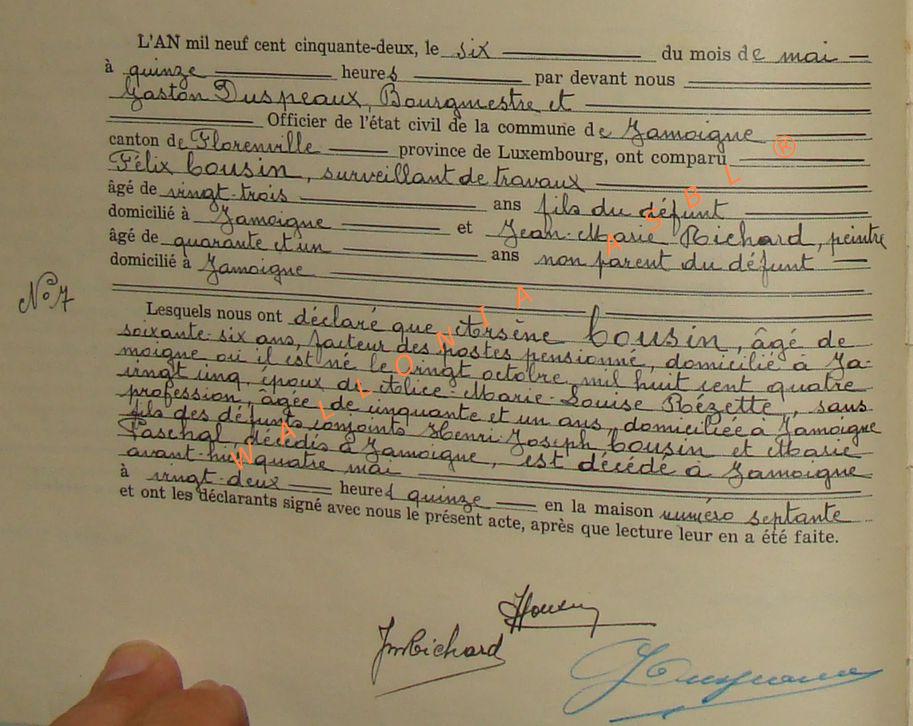 L'AN mil neuf cent cinquante-deux, le six du mois de mai
à quinze heures par devant nous
Gaston Duspeaux, Bourgmestre et
Officier de l'état civil de la commune de Jamoigne
canton de Florenville province de Luxembourg, ont comparu
Félix Cousin, surveillant de travaux
âgé de vingt-trois ans fils du défunt
domicilié à Jamoigne et Jean-Marie Richard, peintre
âgé de quarante et un ans non parent du défunt
domicilié à Jamoigne
N° 7
Lesquels nous ont déclaré que Arsène Cousin, âgé de
soixante-six ans, facteur des postes pensionné, domicilié à Ja-
moigne où il est né le vingt octobre mil huit cent quatre
vingt cinq, époux de Alice-Marie-Louise Rézette, sans
profession, âgée de cinquante et un ans, domiciliée à Jamoigne
fils des défunts conjoints Henri-Joseph Cousin et Marie
Paschal, décédés à Jamoigne, est décédé à Jamoigne
avant-hier quatre mai
à vingt-deux heures quinze en la maison numéro septante
et ont les déclarants signé avec nous le présent acte, après que lecture leur en a été faite.
JmRichard
WALLONIA ASBL ®